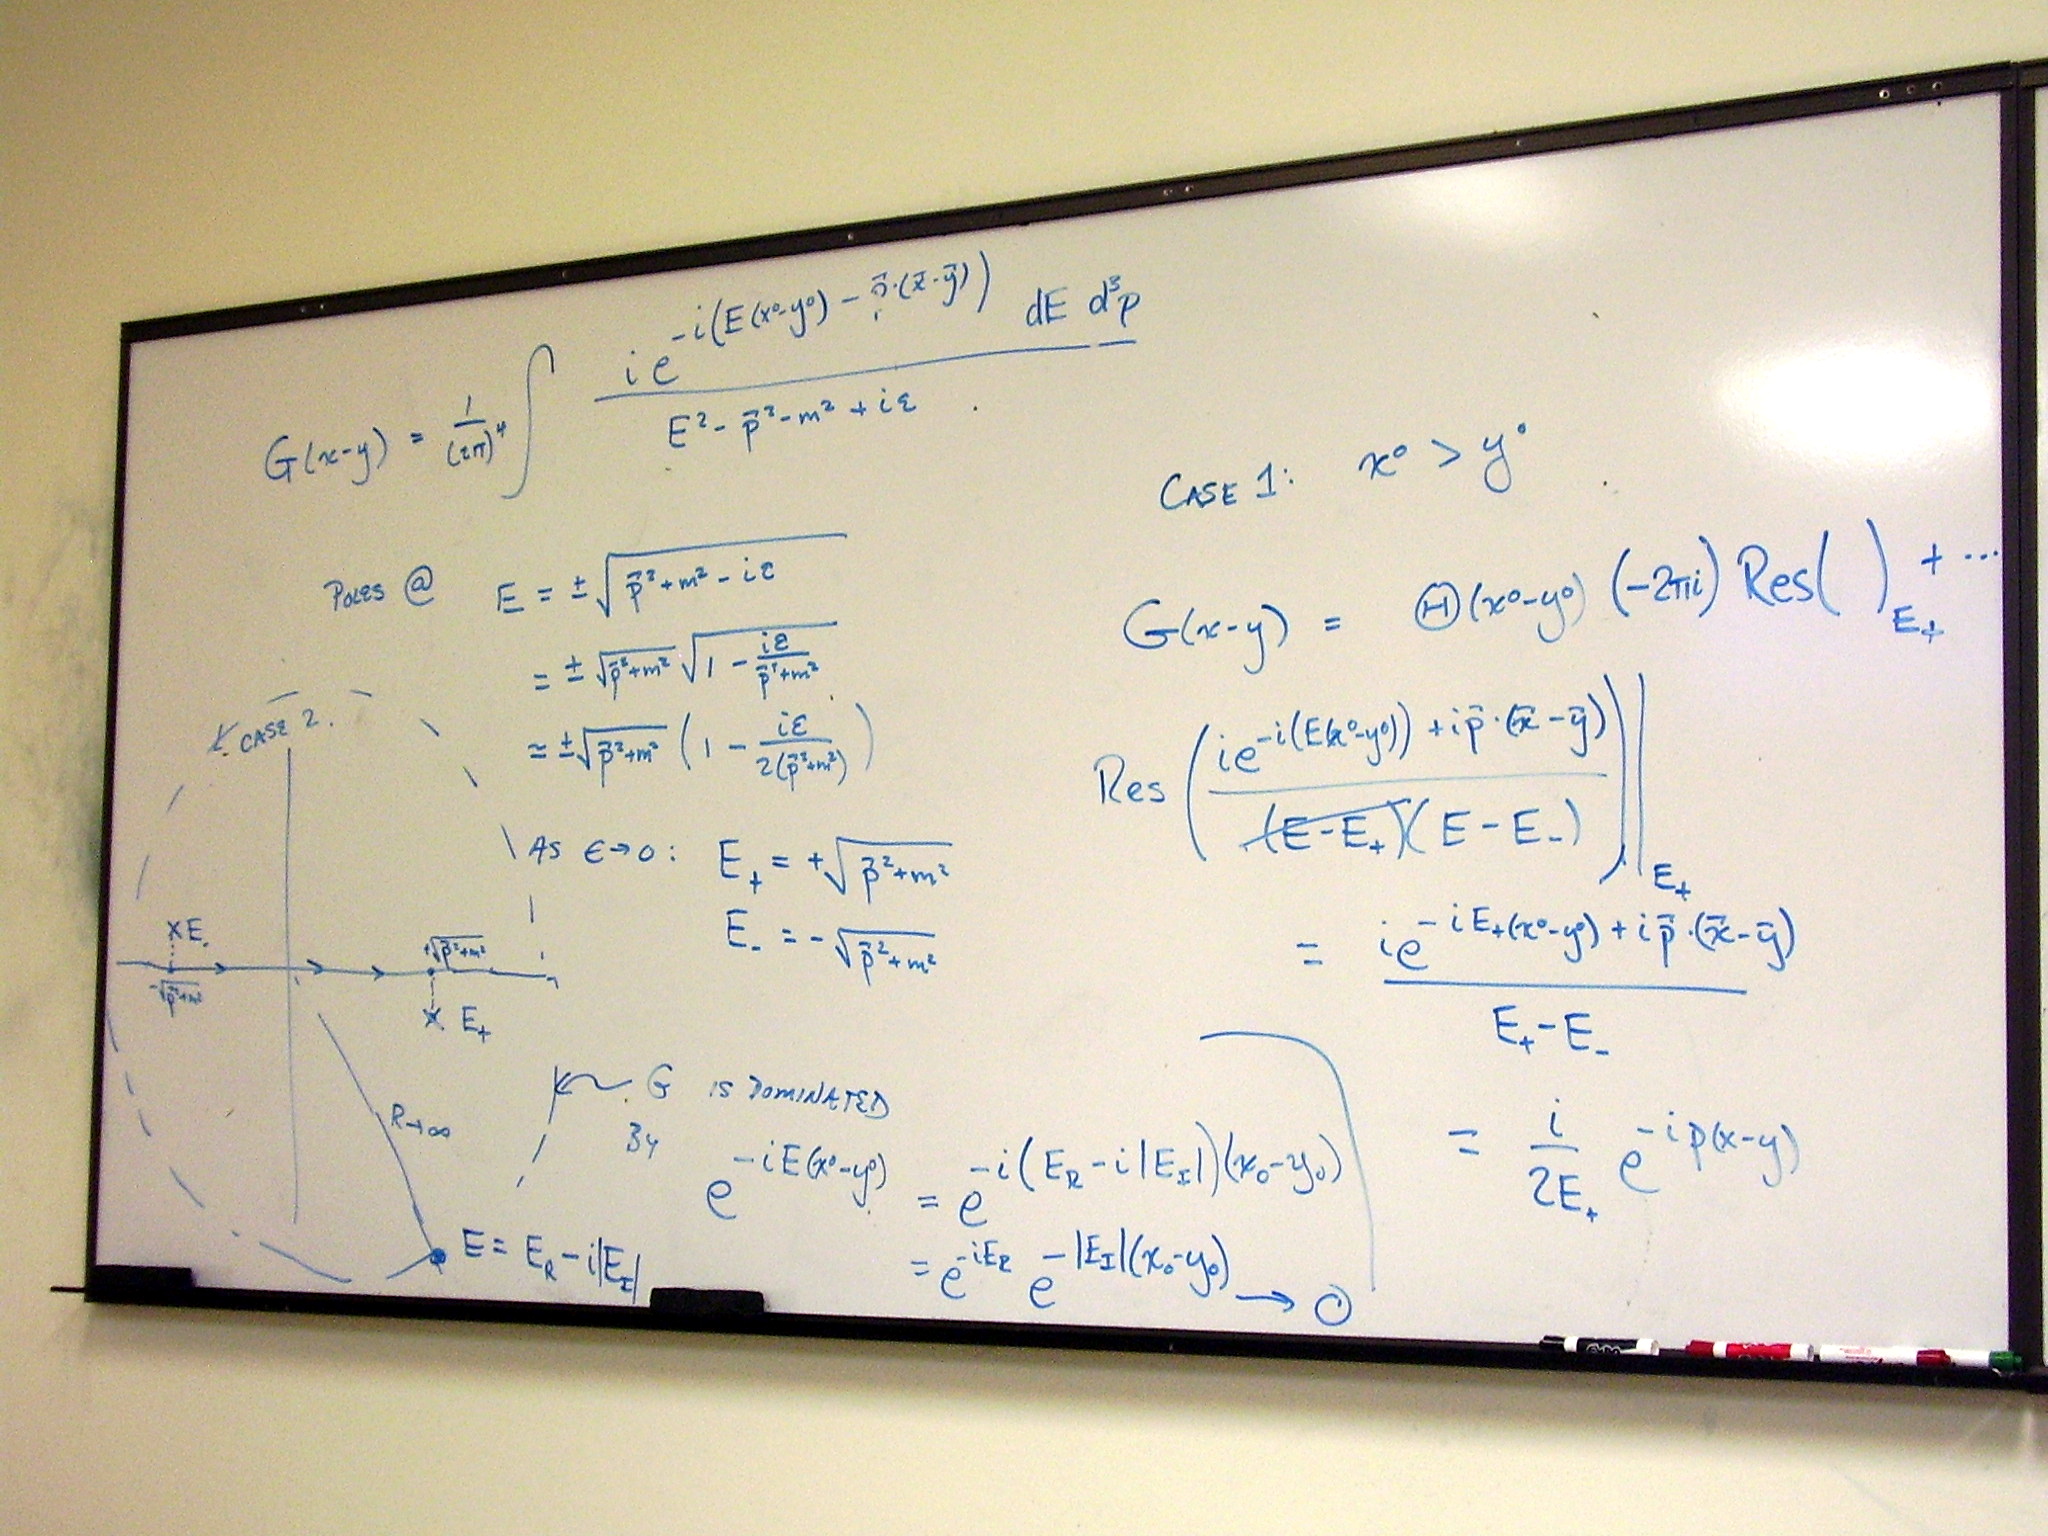 G(x-y) = 1/(2π)⁴ ∫ i e^{-i(E(x⁰-y⁰) - p⃗·(x⃗-y⃗))} dE d³p / (E² - p⃗² - m² + iε)
POLES @ E = ±√(p⃗²+m² - iε)
= ±√(p⃗²+m²) √(1 - iε/(p⃗²+m²))
≃ ±√(p⃗²+m²) (1 - iε/(2(p⃗²+m²)))
AS ϵ→0: E₊ = +√(p⃗²+m²)
E₋ = -√(p⃗²+m²)
CASE 2.
x E₋
-√(p⃗²+m²)
+√(p⃗²+m²)
x E₊
R→∞
E = E_R - i|E_I|
G IS DOMINATED
BY
e^{-iE(x⁰-y⁰)} = e^{-i(E_R - i|E_I|)(x₀-y₀)}
= e^{-iE_R} e^{-|E_I|(x₀-y₀)} → 0
CASE 1: x⁰ > y⁰
G(x-y) = Θ(x⁰-y⁰) (-2πi) Res( )_{E₊} + ...
Res ( i e^{-i(E(x⁰-y⁰)) + i p⃗·(x⃗-y⃗)} / (E-E₊)(E-E₋) ) |_{E₊}
= i e^{-iE₊(x⁰-y⁰) + i p⃗·(x⃗-y⃗)} / (E₊-E₋)
= i/(2E₊) e^{-ip(x-y)}